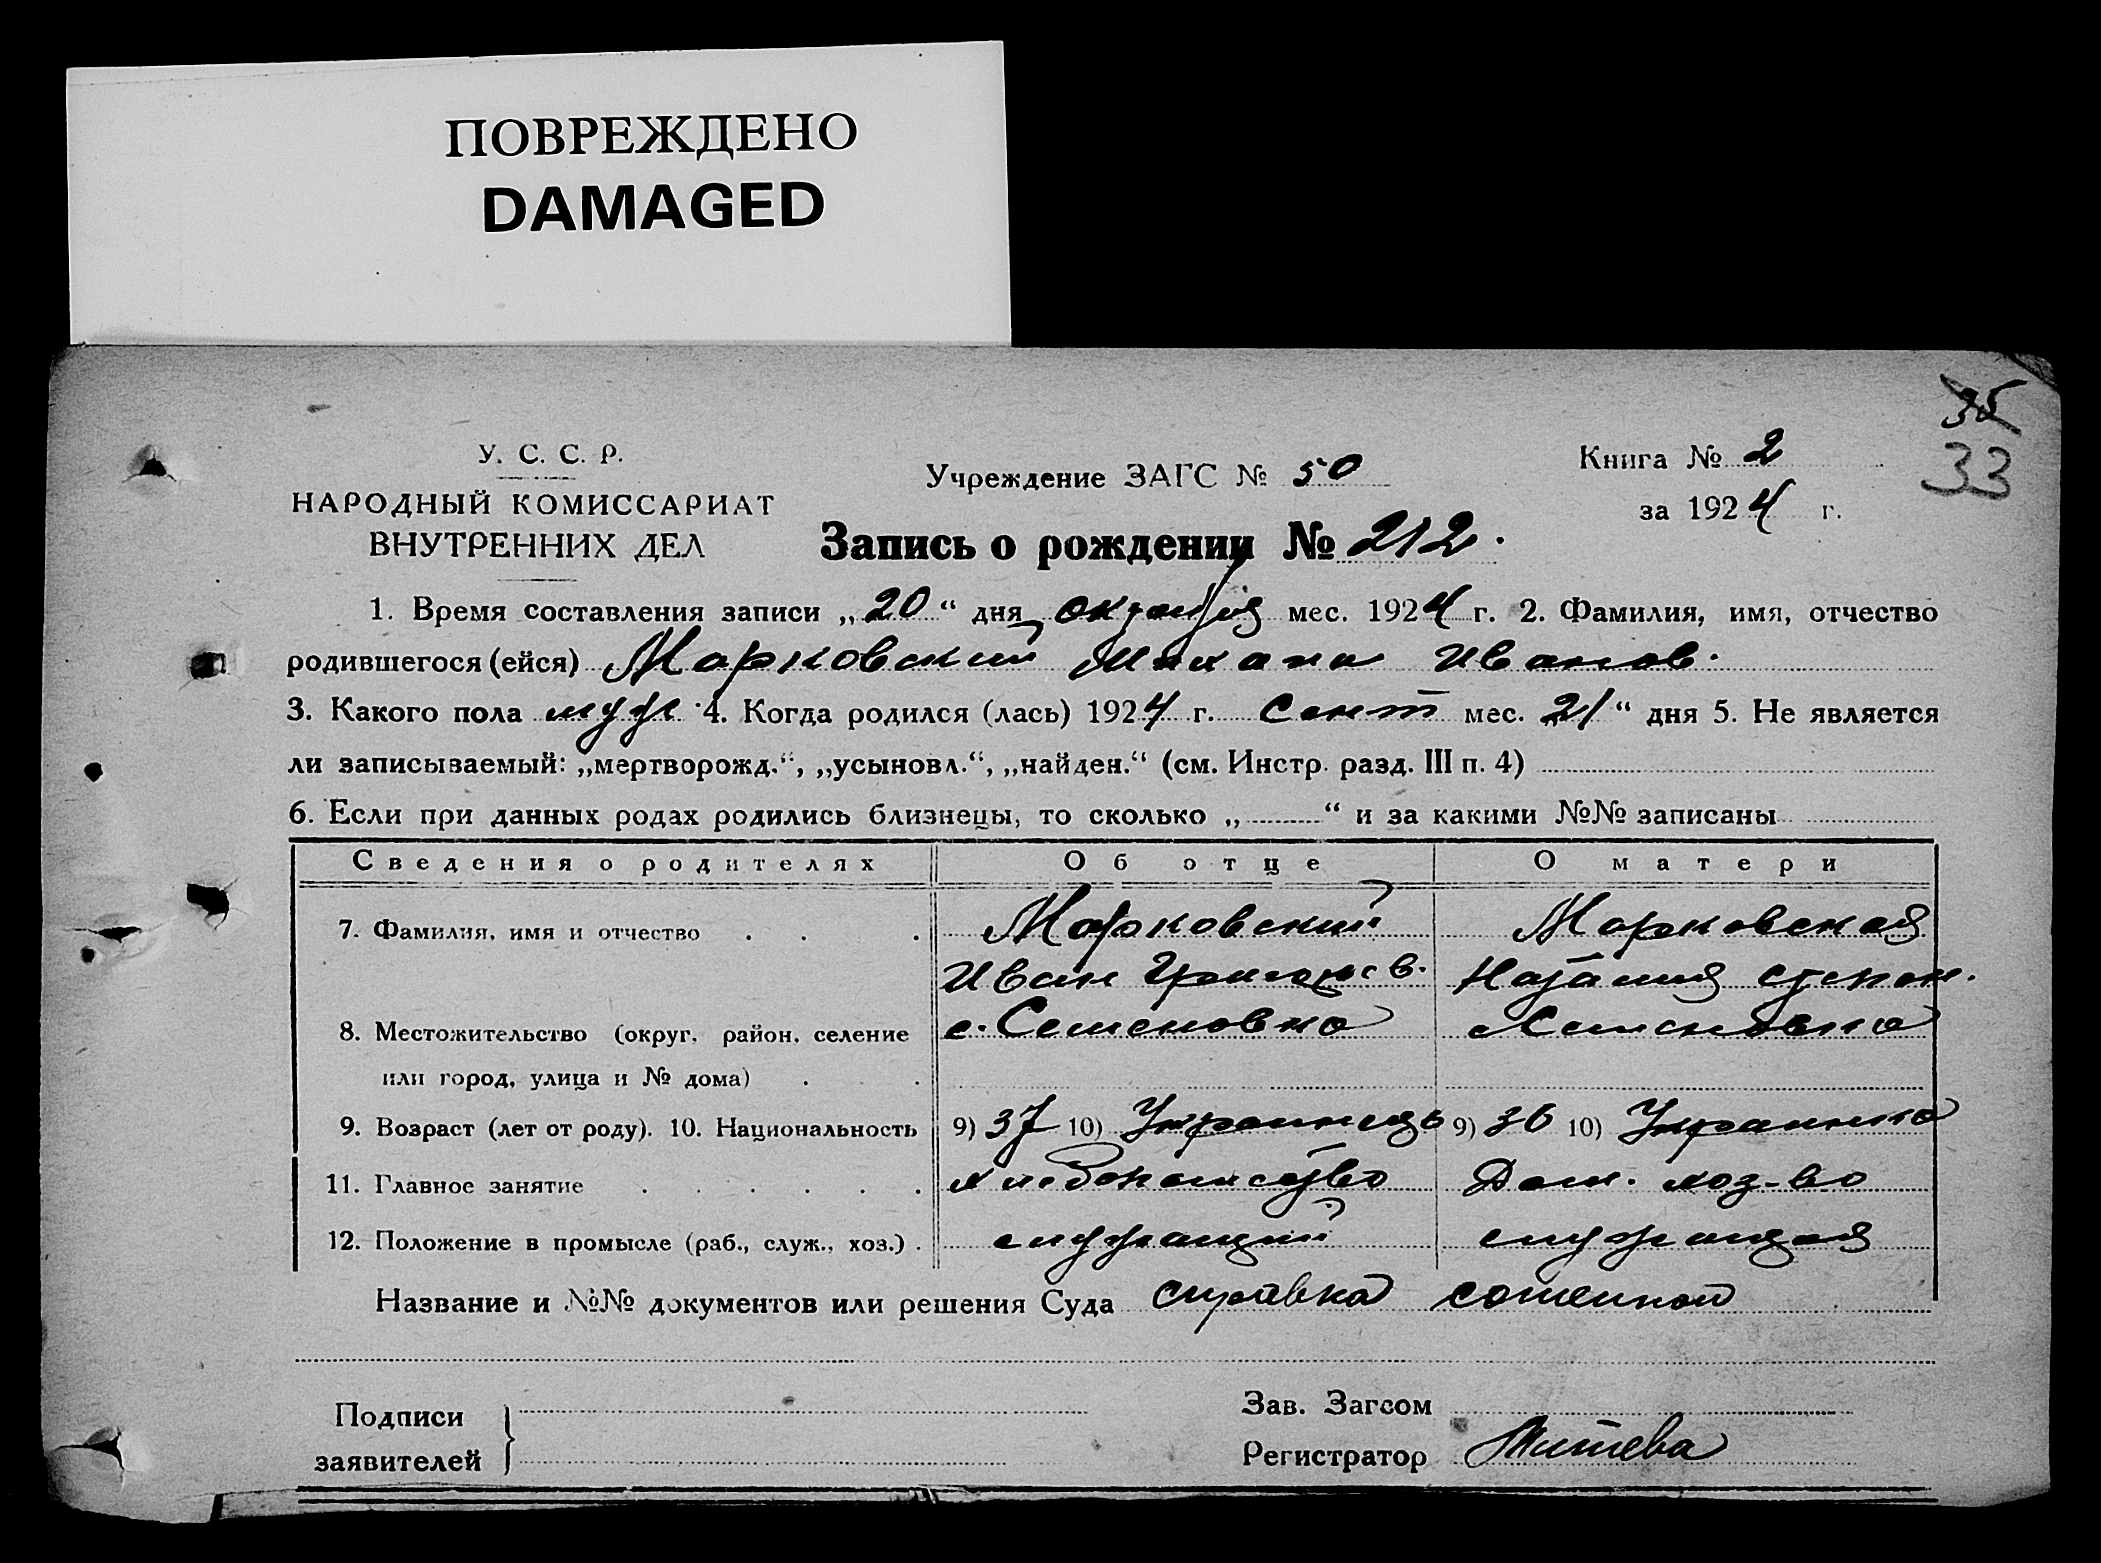 ПОВРЕЖДЕНО
DAMAGED
35
33
У. С. С. Р.
НАРОДНЫЙ КОМИССАРИАТ
ВНУТРЕННИХ ДЕЛ
Учреждение ЗАГС № 50
Книга № 2
за 1924 г.
Запись о рождении № 212.
1. Время составления записи „20“ дня октября мес. 1924 г. 2. Фамилия, имя, отчество
родившегося (ейся) Марковский Михаил Иванов.
3. Какого пола муж 4. Когда родился (лась) 1924 г. Сент мес. 21“ дня 5. Не является
ли записываемый: „мертворожд.“, „усыновл.“, „найден.“ (см. Инстр. разд. III п. 4)
6. Если при данных родах родились близнецы, то сколько „ “ и за какими №№ записаны
Сведения о родителях Об отце О матери
7. Фамилия, имя и отчество Марковский Марковская
Иван в. Наталия Степан.
8. Местожительство (округ, район, селение с. Семеновка Семеновка
или город, улица и № дома)
9. Возраст (лет от роду). 10. Национальность 9) 37 10) Украинець 9) 36 10) Украинка
11. Главное занятие хлебопашество Дом. хоз-во
12. Положение в промысле (раб., служ., хоз.) служащий служащая
Название и №№ документов или решения Суда справка
Подписи
заявителей
Зав. Загсом
Регистратор